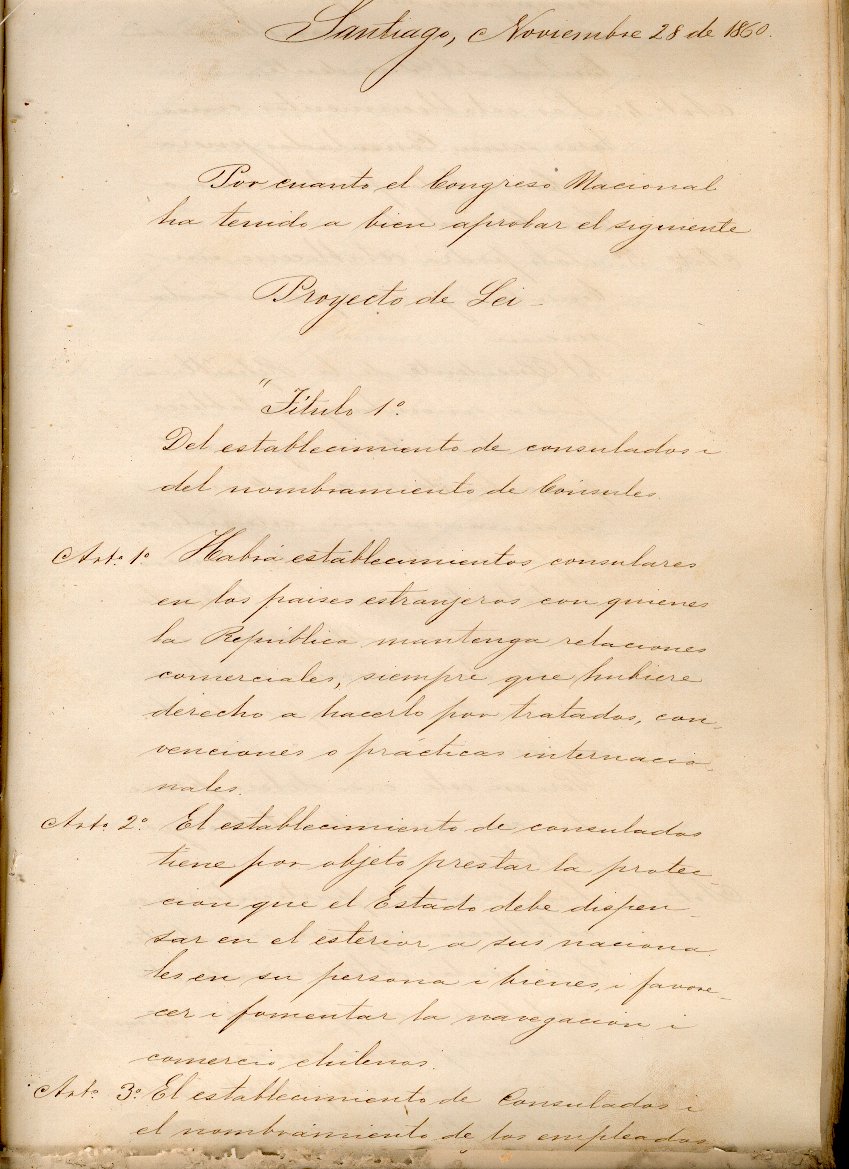 Santiago, Noviembre 28 de 1860.
Por cuanto el Congreso Nacional
ha tenido a bien aprobar el siguiente
Proyecto de Lei
"Título 1°.
Del establecimiento de consulados i
del nombramiento de Cónsules.
Arto. 1° Habrá establecimientos consulares
en los paises estranjeros con quienes
la República mantenga relaciones
comerciales, siempre que hubiere
derecho a hacerlo por tratados, con-
venciones o prácticas internacio-
nales.
Arto. 2° El establecimiento de consulados
tiene por objeto prestar la protec
cion que el Estado debe dispen-
sar en el esterior a sus naciona-
les en su persona i bienes, i favore-
cer i fomentar la navegacion i
comercio chilenos.
Arto. 3° El establecimiento de Consulados i
el nombramiento de los empleados